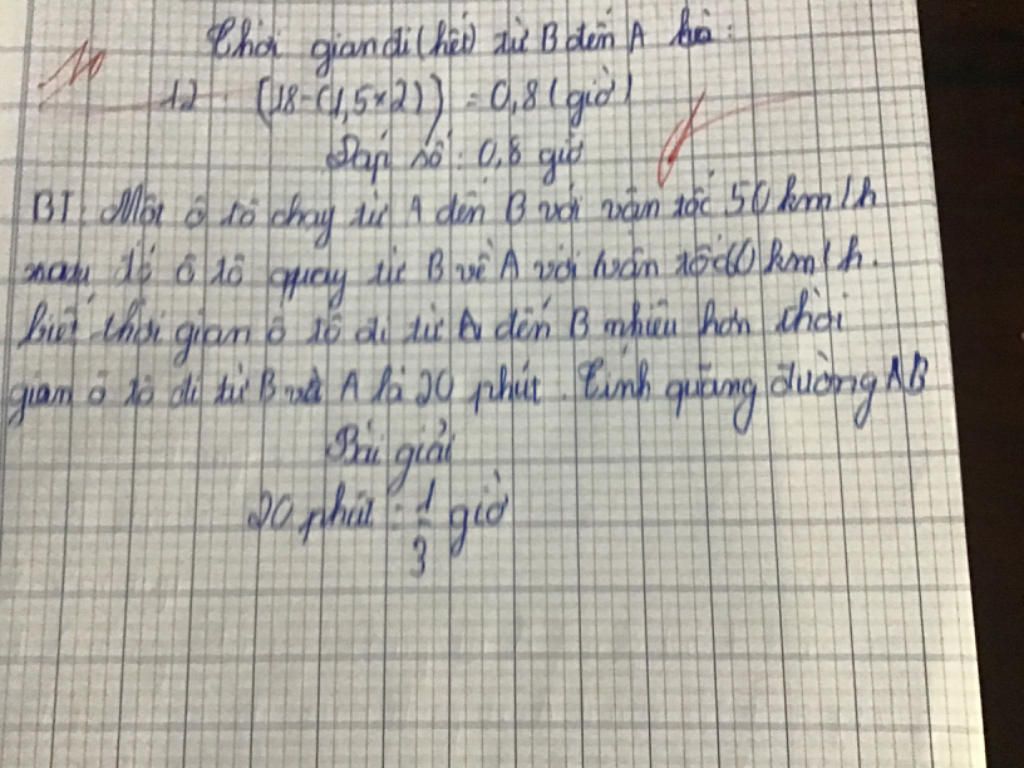 10
Thời gian đi (hết) từ B đến A là:
12 : (18-(1,5×2)) = 0,8 (giờ)
Đáp số: 0,8 giờ
BT: Một ô tô chạy từ A đến B với vận tốc 50 km/h
sau đó ô tô quay từ B về A với vận tốc 60 km/h.
biết thời gian ô tô đi từ A đến B nhiều hơn thời
gian ô tô đi từ B về A là 20 phút. Tính quãng đường AB
Bài giải
20 phút = 1/3 giờ